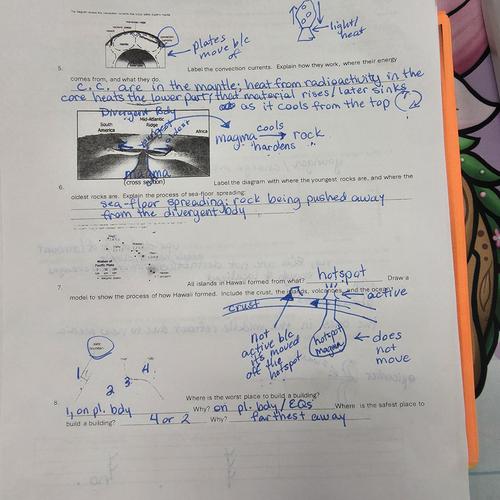 light/
heat
plates
move b/c
of
5.
Label the convection currents. Explain how they work, where their energy
comes from, and what they do.
C.C. are in the mantle; heat from radioactivity in the
core heats the lower part; that material rises/later sinks
as it cools from the top
Divergent Bdy
Mid-Atlantic
Ridge
South
America
Africa
youngest
oldest
magma
(cross section)
magma cools → rock
hardens
6.
Label the diagram with where the youngest rocks are, and where the
oldest rocks are. Explain the process of sea-floor spreading:
sea-floor spreading: rock being pushed away
from the divergent bdy
7.
All islands in Hawaii formed from what? hotspot Draw a
model to show the process of how Hawaii formed. Include the crust, the islands, volcanoes, and the ocean.
crust
active
not
active b/c
it's moved
off the
hotspot
hotspot
magma
does
not
move
1
2
3
4
8.
Where is the worst place to build a building?
1, on pl. bdy Why? on pl. bdy/EQs Where is the safest place to
build a building? 4 or 2 Why? farthest away